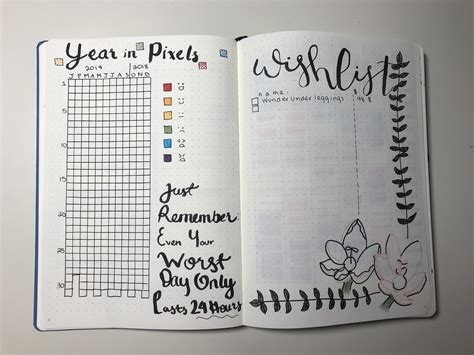 Year in Pixels
2019 2018
J F M A M J J A S O N D
1
5
10
15
20
25
30
:
Just
Remember:
Even Your
Worst
Day Only
Lasts 24 Hours
wishlist
name: $
Wunder under leggings 98 $